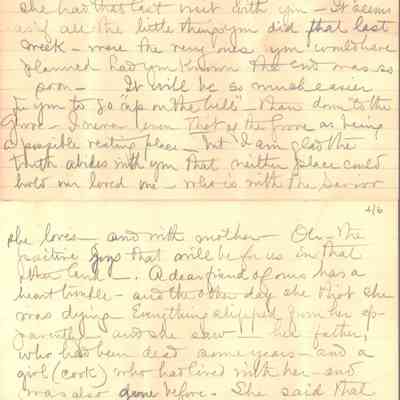 she had that last visit with you - It seems
as if all the little things you did that last
week - were the very ones you would have
planned had you known the end was so
soon - It will be so much easier
for you to go "up on the hill" - than down to the
Grove - I never even that of the Grove as being
a possible resting place - but I am glad the
truth abides with you that neither place could
hold our loved one - who is with the Savior
4/6
she loves - and with mother - Oh - the
positive joys that will be for us in that
other land -. A dear friend of ours has a
heart trouble - and the other day she thot she
was dying - Everything slipped from her ap-
parently - and she saw - her father,
who had been dead some years - and a
girl (cook) who had lived with her - and
was also gone before. She said that